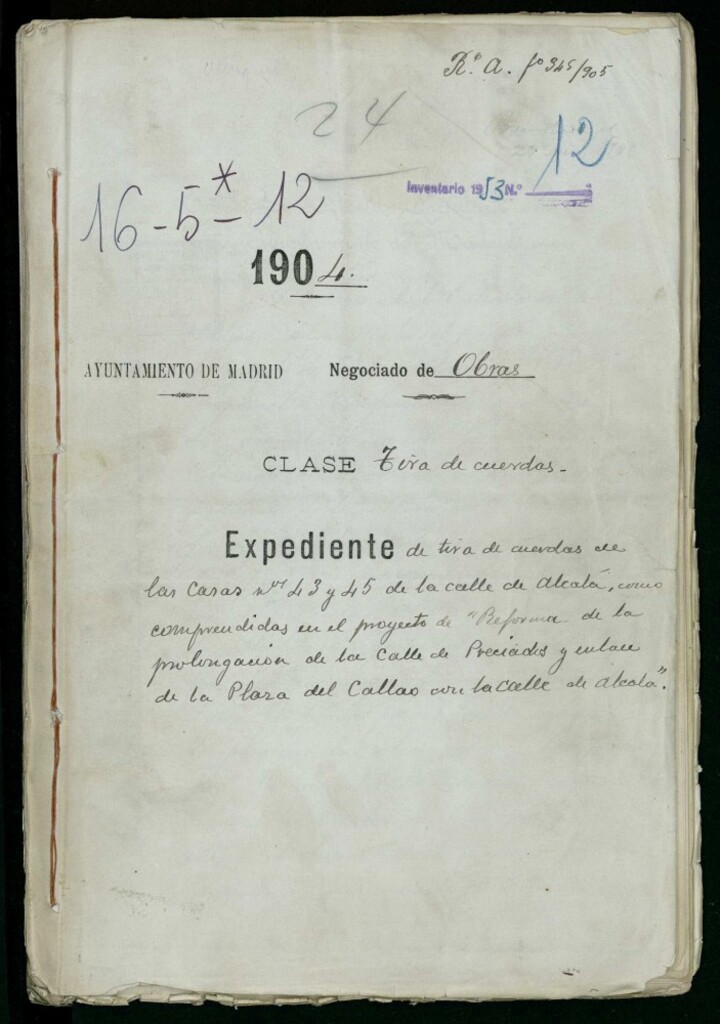 Rº. A. fº 345/905
24
12
Inventario 1953 N.º
16-5*-12
1904.
AYUNTAMIENTO DE MADRID Negociado de Obras
CLASE Tira de cuerdas.
Expediente de tira de cuerdas de
las casas nos 43 y 45 de la calle de Alcalá, como
comprendidas en el proyecto de "Reforma de la
prolongación de la Calle de Preciados y enlace
de la Plaza del Callao con la calle de Alcalá".